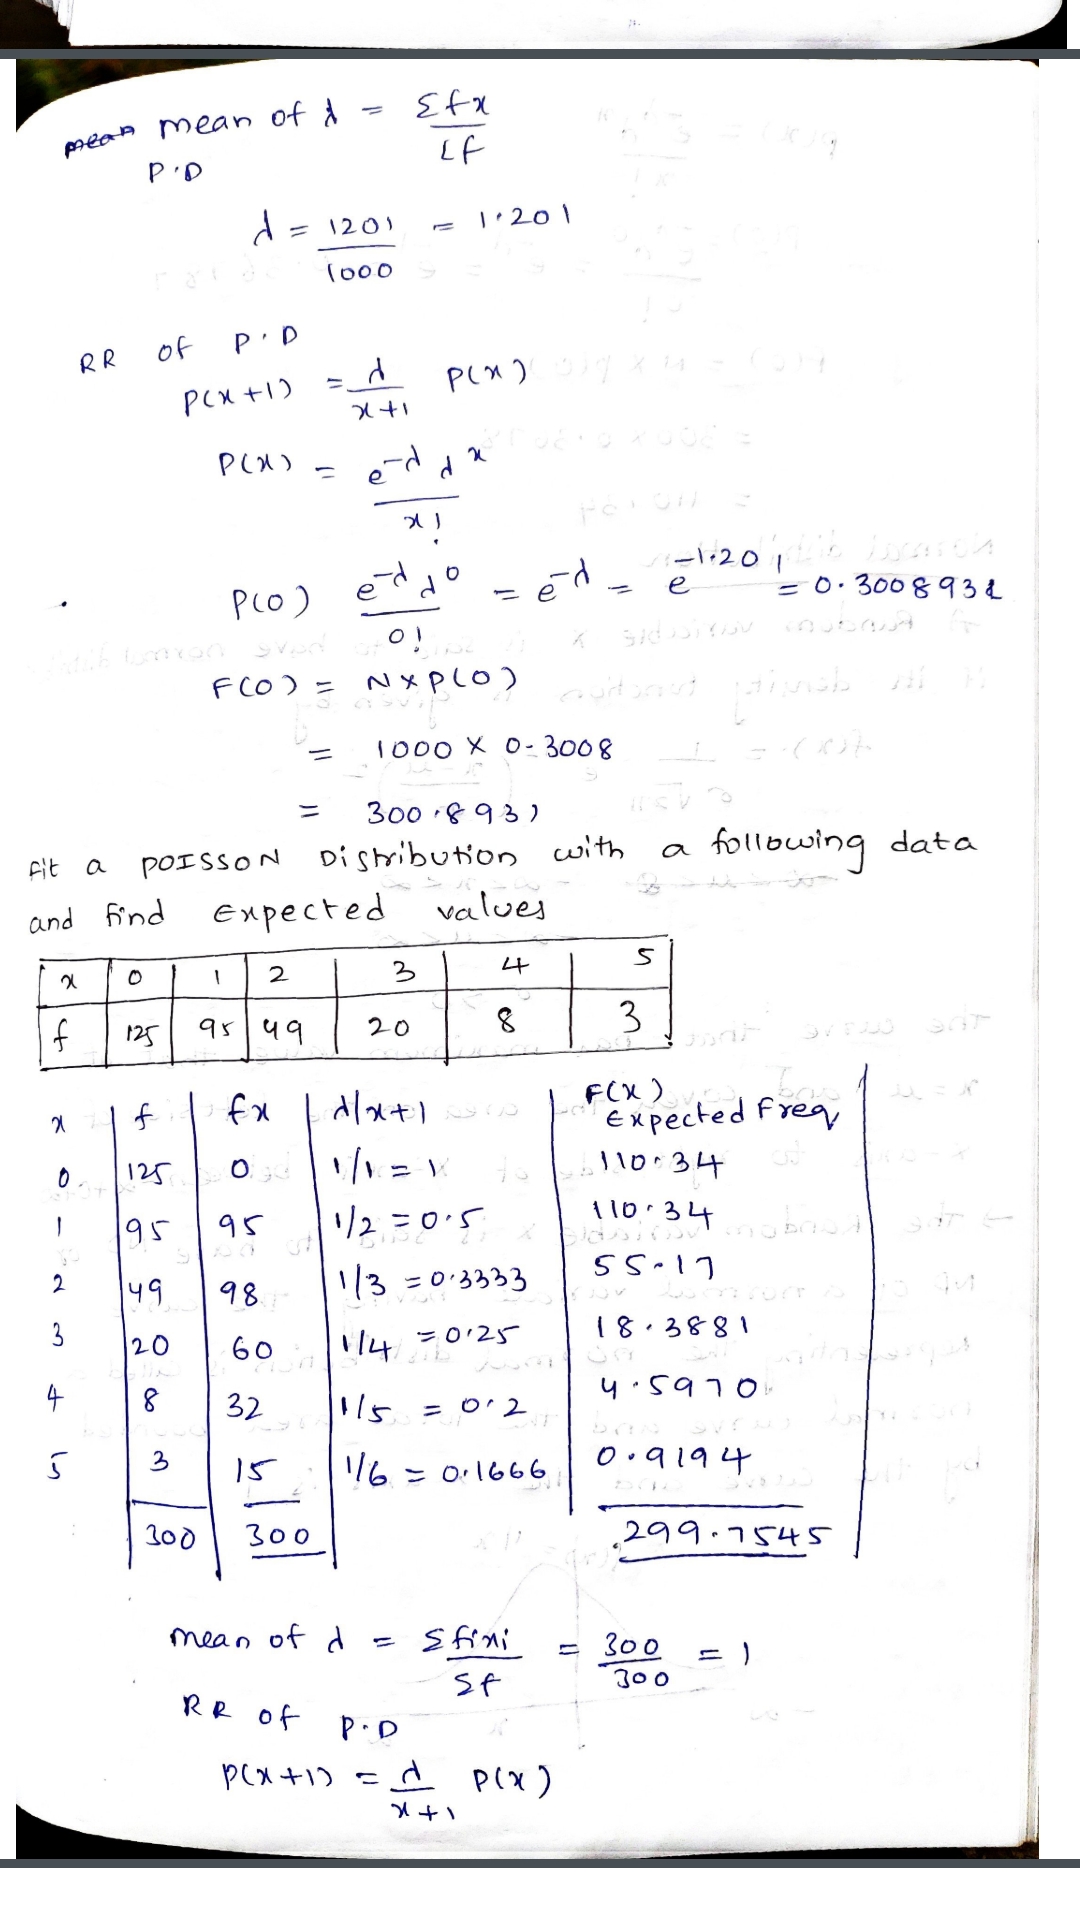 mean of λ = Σfx / Σf
P.D
λ = 1201 / 1000 = 1.201
RR of P.D
P(x+1) = λ / x+1 P(x)
P(x) = e^-λ λ^x / x!
P(0) e^-λ λ^0 / 0! = e^-λ = e^-1.201 = 0.3008931
F(0) = N x P(0)
= 1000 x 0.3008
= 300.8931
Fit a POISSON Distribution with a following data
and find Expected values
x 0 1 2 3 4 5
f 125 95 49 20 8 3
x f fx λ/x+1 F(x) Expected Freq
0 125 0 1/1 = 1 110.34
1 95 95 1/2 = 0.5 110.34
2 49 98 1/3 = 0.3333 55.17
3 20 60 1/4 = 0.25 18.3881
4 8 32 1/5 = 0.2 4.5970
5 3 15 1/6 = 0.1666 0.9194
300 300 299.7545
mean of λ = Σfixi / Σf = 300 / 300 = 1
RR of P.D
P(x+1) = λ / x+1 P(x)